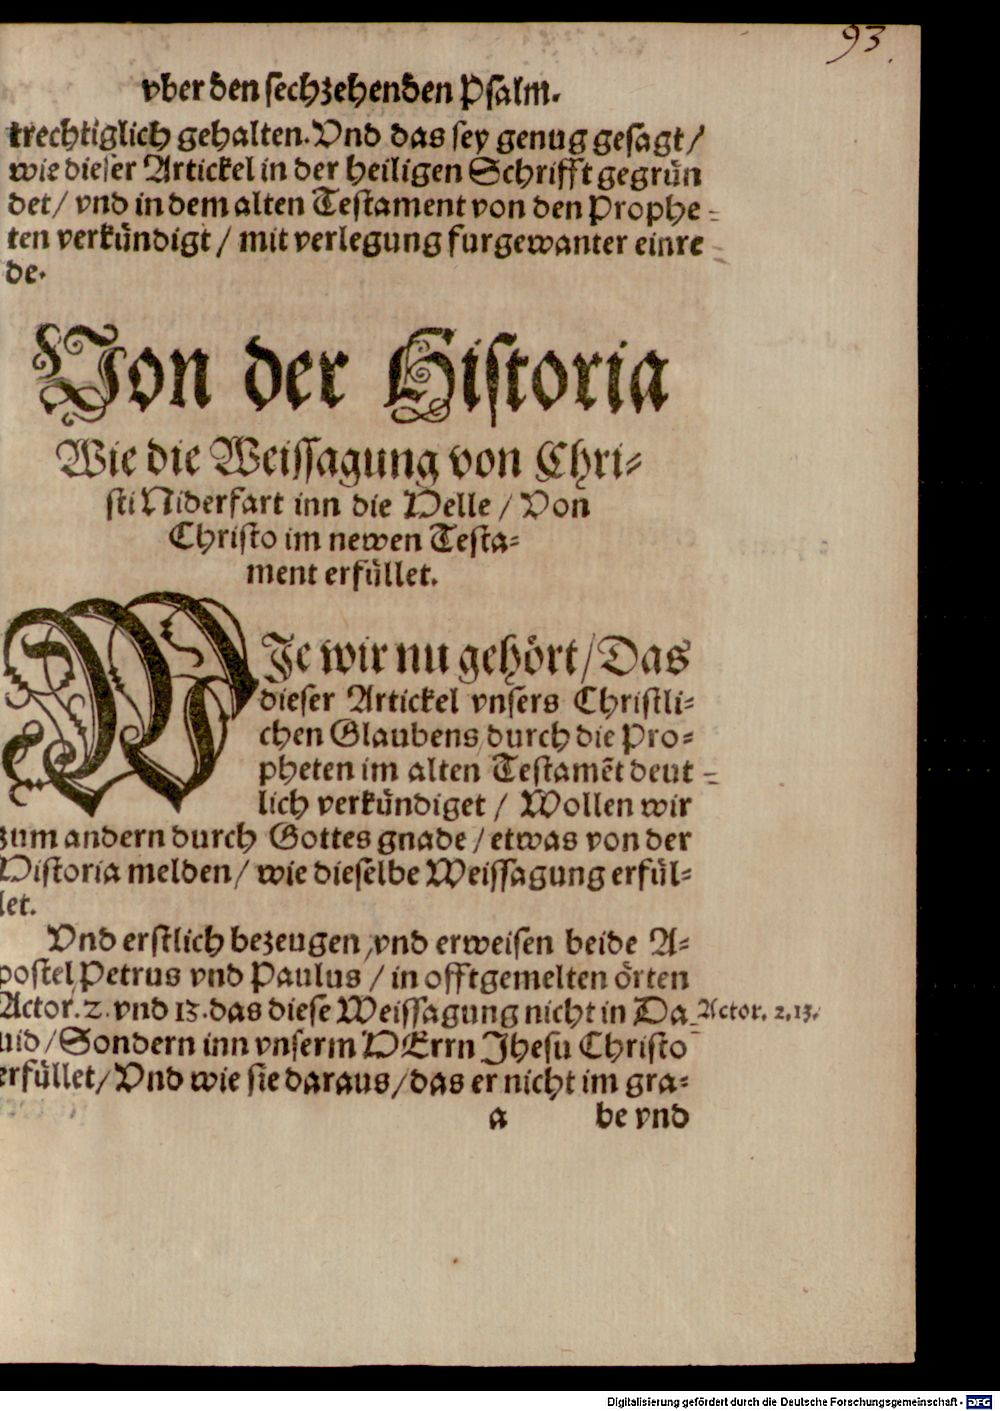 93.
vber den sechzehenden Psalm.
trechtiglich gehalten. Vnd das sey genug gesagt/
wie dieser Artickel in der heiligen Schrifft gegrün
det/ vnd in dem alten Testament von den Prophe=
ten verkündigt/ mit verlegung furgewanter einre=
de.
Von der Historia
Wie die Weissagung von Chri=
sti Niderfart inn die Helle/ Von
Christo im newen Testa=
ment erfüllet.
WJe wir nu gehört/ Das
dieser Artickel vnsers Christli=
chen Glaubens/ durch die Pro=
pheten im alten Testamẽt deut=
lich verkündiget/ Wollen wir
zum andern durch Gottes gnade/ etwas von der
Historia melden/ wie dieselbe Weissagung erfül=
let.
Vnd erstlich bezeugen/ vnd erweisen beide A=
postel Petrus vnd Paulus/ in offtgemelten örten
Actor. 2. vnd 13. das diese Weissagung nicht in Da=
Actor. 2. 13.
uid/ Sondern inn vnserm HErrn Jhesu Christo
erfüllet/ Vnd wie sie daraus/ das er nicht im gra=
a be vnd
Digitalisierung gefördert durch die Deutsche Forschungsgemeinschaft - DFG